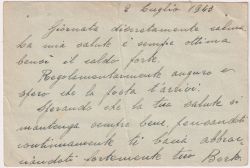 2 Luglio 1943
Giornata discretamente calma
La mia salute è sempre ottima
bensì il caldo forte.
Regolamentarmente auguro e
spero che la posta t'arrivi.
Sperando che la tua salute si
mantenga sempre bene, pensandoti
continuamente ti bacia abbrac
ciandoti fortemente tuo